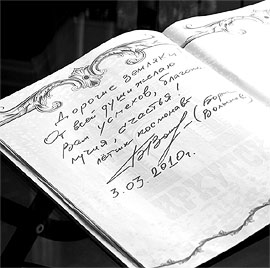 Дорогие земляки
От всей души желаю
Вам успехов, благопо-
лучия, счастья!
летчик космонавт
(Борис
Волынов)
3.03.2010г.